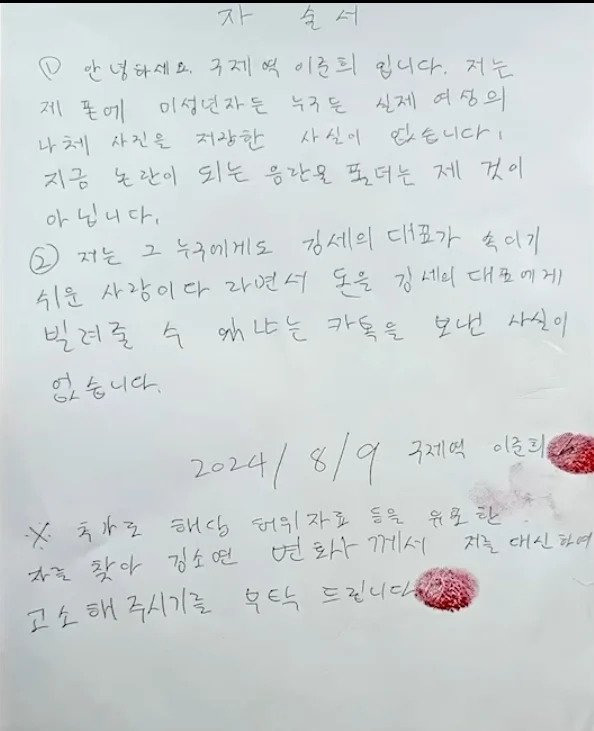 자 술서
① 안녕하세요. 구제역 이준희 입니다. 저는
제 폰에 미성년자든 누구든 실제 여성의
나체 사진을 저장한 사실이 없습니다.
지금 논란이 되는 음란물 폴더는 제 것이
아닙니다.
② 저는 그 누구에게도 김세의 대표가 속이기
쉬운 사람이다 라면서 돈을 김세의 대표에게
빌려줄 수 있냐는 카톡을 보낸 사실이
없습니다.
2024/8/9 구제역 이준희
※ 추가로 해당 허위자료 등을 유포한
자를 찾아 김소연 변호사께서 저를 대신하여
고소해주시기를 부탁 드립니다